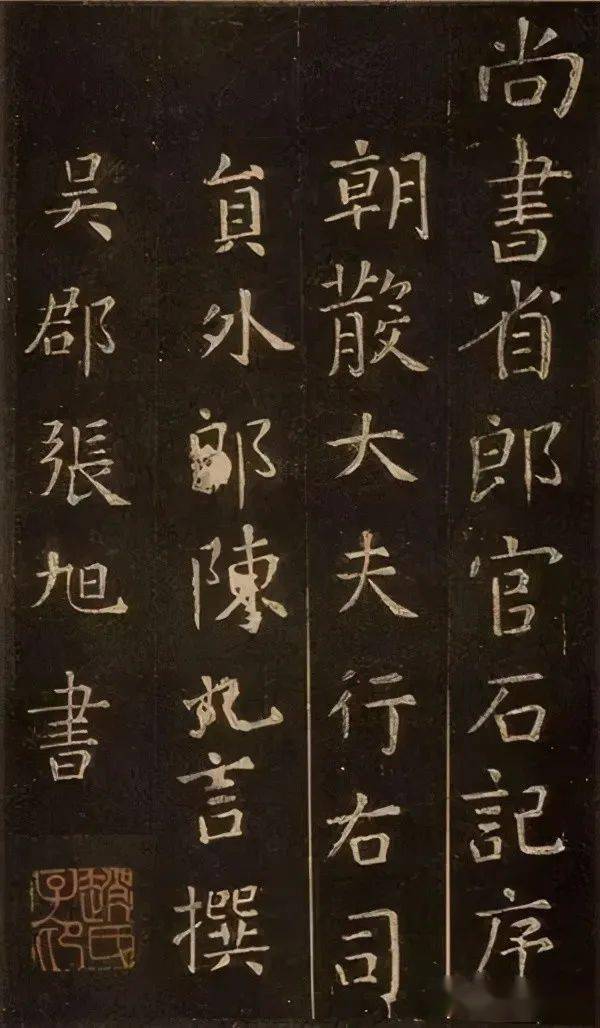 尚書省郎官石記序
朝散大夫行右司
貟外郎陳九言撰
吳郡張旭書